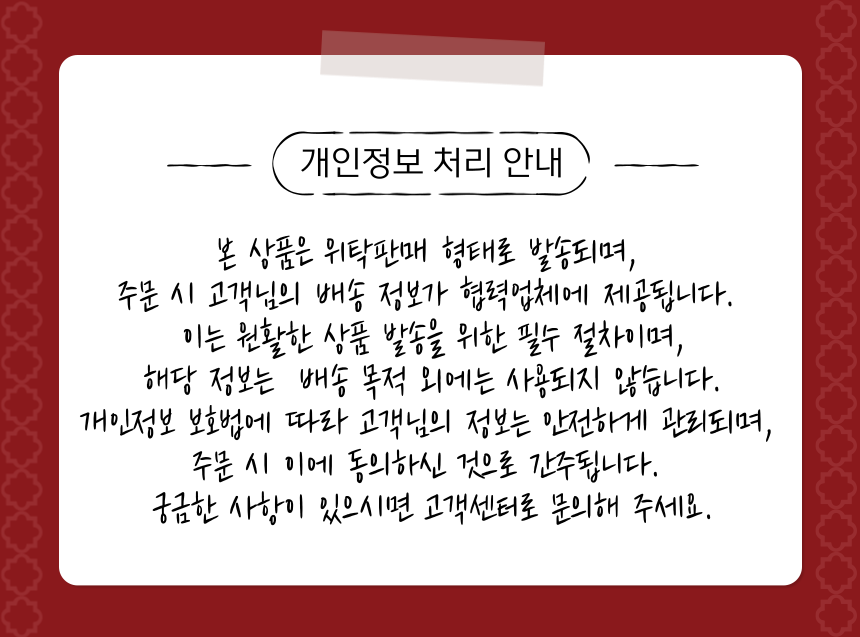 개인정보 처리 안내
본 상품은 위탁판매 형태로 발송되며,
주문 시 고객님의 배송 정보가 협력업체에 제공됩니다.
이는 원활한 상품 발송을 위한 필수 절차이며,
해당 정보는 배송 목적 외에는 사용되지 않습니다.
개인정보 보호법에 따라 고객님의 정보는 안전하게 관리되며,
주문 시 이에 동의하신 것으로 간주됩니다.
궁금한 사항이 있으시면 고객센터로 문의해 주세요.